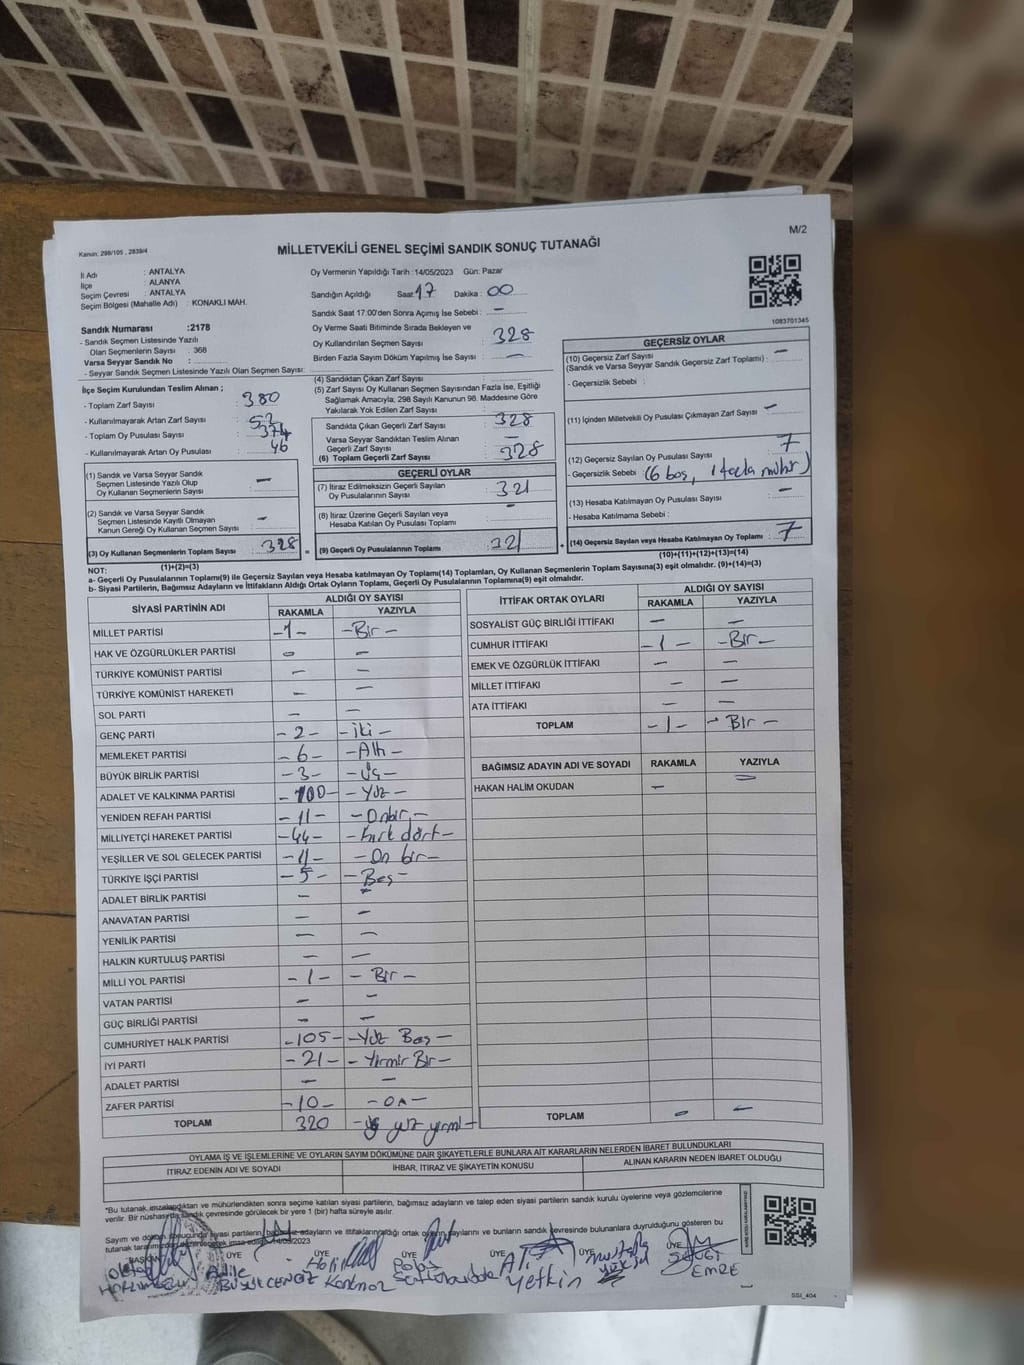 Kanun: 298/105 , 2839/4
MİLLETVEKİLİ GENEL SEÇİMİ SANDIK SONUÇ TUTANAĞI
M/2
İl Adı : ANTALYA
İlçe : ALANYA
Seçim Çevresi : ANTALYA
Seçim Bölgesi (Mahalle Adı) : KONAKLI MAH.
Sandık Numarası :2178
- Sandık Seçmen Listesinde Yazılı
Olan Seçmenlerin Sayısı : 368
Varsa Seyyar Sandık No :
- Seyyar Sandık Seçmen Listesinde Yazılı Olan Seçmen Sayısı:
Oy Vermenin Yapıldığı Tarih :14/05/2023 Gün: Pazar
Sandığın Açıldığı Saat 17 Dakika : 00
Sandık Saat 17.00'den Sonra Açımış İse Sebebi : -
Oy Verme Saati Bitiminde Sırada Bekleyen ve
Oy Kullandırılan Seçmen Sayısı : 328
Birden Fazla Sayım Döküm Yapılmış İse Sayısı : -
1083701345
İlçe Seçim Kurulundan Teslim Alınan ;
- Toplam Zarf Sayısı : 380
- Kullanılmayarak Artan Zarf Sayısı : 52
- Toplam Oy Pusulası Sayısı : 374
- Kullanılmayarak Artan Oy Pusulası : 46
(1) Sandık ve Varsa Seyyar Sandık
Seçmen Listesinde Yazılı Olup
Oy Kullanan Seçmenlerin Sayısı : -
(2) Sandık ve Varsa Seyyar Sandık
Seçmen Listesinde Kayıtlı Olmayan
Kanun Gereği Oy Kullanan Seçmen Sayısı : -
(3) Oy Kullanan Seçmenlerin Toplam Sayısı : 328
(1)+(2)=(3)
(4) Sandıktan Çıkan Zarf Sayısı :
(5) Zarf Sayısı Oy Kullanan Seçmen Sayısından Fazla İse, Eşitliği
Sağlamak Amacıyla, 298 Sayılı Kanunun 98. Maddesine Göre
Yakılarak Yok Edilen Zarf Sayısı :
Sandıkta Çıkan Geçerli Zarf Sayısı : 328
Varsa Seyyar Sandıktan Teslim Alınan
Geçerli Zarf Sayısı : -
(6) Toplam Geçerli Zarf Sayısı : 328
GEÇERLİ OYLAR
(7) İtiraz Edilmeksizin Geçerli Sayılan
Oy Pusulalarının Sayısı : 321
(8) İtiraz Üzerine Geçerli Sayılan veya
Hesaba Katılan Oy Pusulası Toplamı : -
= (9) Geçerli Oy Pusulalarının Toplamı : 321
GEÇERSİZ OYLAR
(10) Geçersiz Zarf Sayısı
(Sandık ve Varsa Seyyar Sandık Geçersiz Zarf Toplamı) : -
- Geçersizlik Sebebi :
(11) İçinden Milletvekili Oy Pusulası Çıkmayan Zarf Sayısı : -
(12) Geçersiz Sayılan Oy Pusulası Sayısı : 7
- Geçersizlik Sebebi : (6 boş, 1 fazla mühür)
(13) Hesaba Katılmayan Oy Pusulası Sayısı : -
- Hesaba Katılmama Sebebi :
+ (14) Geçersiz Sayılan veya Hesaba Katılmayan Oy Toplamı : 7
(10)+(11)+(12)+(13)=(14)
NOT:
a- Geçerli Oy Pusulalarının Toplamı(9) ile Geçersiz Sayılan veya Hesaba katılmayan Oy Toplamı(14) Toplamları, Oy Kullanan Seçmenlerin Toplam Sayısına(3) eşit olmalıdır. (9)+(14)=(3)
b- Siyasi Partilerin, Bağımsız Adayların ve İttifakların Aldığı Ortak Oyların Toplamı, Geçerli Oy Pusulalarının Toplamına(9) eşit olmalıdır.
SİYASİ PARTİNİN ADI ALDIĞI OY SAYISI
RAKAMLA YAZIYLA
MİLLET PARTİSİ -1- -Bir-
HAK VE ÖZGÜRLÜKLER PARTİSİ - -
TÜRKİYE KOMÜNİST PARTİSİ - -
TÜRKİYE KOMÜNİST HAREKETİ - -
SOL PARTİ - -
GENÇ PARTİ -2- -iki-
MEMLEKET PARTİSİ -6- -Altı-
BÜYÜK BİRLİK PARTİSİ -3- -Üç-
ADALET VE KALKINMA PARTİSİ -100- -Yüz-
YENİDEN REFAH PARTİSİ -11- -Onbir-
MİLLİYETÇİ HAREKET PARTİSİ -44- -Kırk dört-
YEŞİLLER VE SOL GELECEK PARTİSİ -11- -On bir-
TÜRKİYE İŞÇİ PARTİSİ -5- -Beş-
ADALET BİRLİK PARTİSİ - -
ANAVATAN PARTİSİ - -
YENİLİK PARTİSİ - -
HALKIN KURTULUŞ PARTİSİ - -
MİLLİ YOL PARTİSİ -1- -Bir-
VATAN PARTİSİ - -
GÜÇ BİRLİĞİ PARTİSİ - -
CUMHURİYET HALK PARTİSİ -105- -Yüz Beş-
İYİ PARTİ -21- -Yirmir Bir-
ADALET PARTİSİ - -
ZAFER PARTİSİ -10- -on-
TOPLAM 320 -üç yüz yirmi-
İTTİFAK ORTAK OYLARI ALDIĞI OY SAYISI
RAKAMLA YAZIYLA
SOSYALİST GÜÇ BİRLİĞİ İTTİFAKI - -
CUMHUR İTTİFAKI -1- -Bir-
EMEK VE ÖZGÜRLÜK İTTİFAKI - -
MİLLET İTTİFAKI - -
ATA İTTİFAKI - -
TOPLAM -1- -Bir-
BAĞIMSIZ ADAYIN ADI VE SOYADI RAKAMLA YAZIYLA
HAKAN HALİM OKUDAN - -
TOPLAM - -
OYLAMA İŞ VE İŞLEMLERİNE VE OYLARIN SAYIM DÖKÜMÜNE DAİR ŞİKAYETLERLE BUNLARA AİT KARARLARIN NELERDEN İBARET BULUNDUKLARI
İTİRAZ EDENİN ADI VE SOYADI İHBAR, İTİRAZ VE ŞİKAYETİN KONUSU ALINAN KARARIN NEDEN İBARET OLDUĞU
*Bu tutanak imzalandıktan ve mühürlendikten sonra seçime katılan siyasi partilerin, bağımsız adayların ve talep eden siyasi partilerin sandık kurulu üyelerine veya gözlemcilerine
verilir. Bir nüshası da sandık çevresinde görülecek bir yere 1 (bir) hafta süreyle asılır.
Sayım ve döküm sonucunda siyasi partilerin, bağımsız adayların ve ittifakların aldığı ortak oyların sayılarını ve bunların sandık çevresinde bulunanlara duyrulduğunu gösteren bu
tutanak tarafımızdan 14/05/2023
BAŞKAN ÜYE ÜYE ÜYE ÜYE ÜYE ÜYE
Adile
BÜYÜKCENGİZ
Ali
Yetkin
mustafa
yüksel
SEVGİ
EMRE
SSI_404